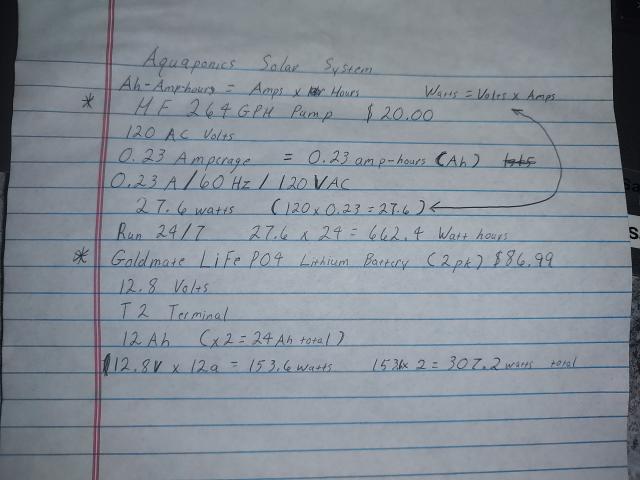 Aquaponics Solar System
Ah-Amphours = Amps x Hours Watts = Volts x Amps
* HF 264 GPH Pump $20.00
120 AC Volts
0.23 Amperage = 0.23 amp-hours (Ah)
0.23 A/60 Hz/120 VAC
27.6 watts (120 x 0.23 = 27.6)
Run 24/7 27.6 x 24 = 662.4 Watt hours
* Goldmate LiFe PO4 Lithium Battery (2pk) $86.99
12.8 Volts
T2 Terminal
12 Ah (x2 = 24 Ah total)
12.8V x 12a = 153.6 watts 153.6x 2 = 307.2 watts total